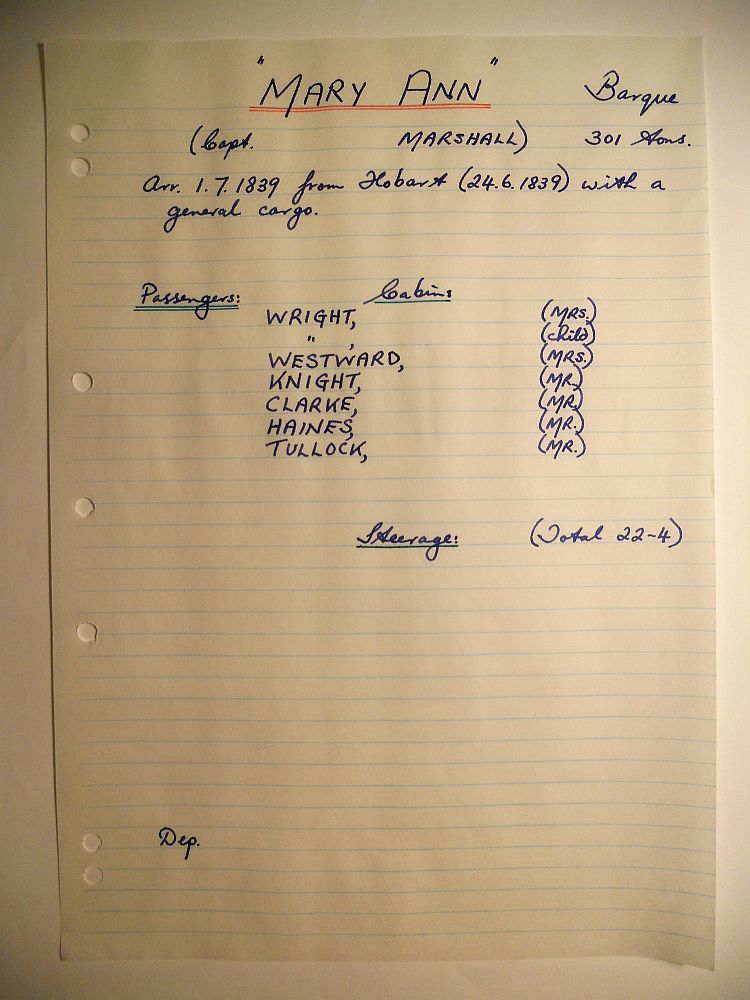 "MARY ANN" Barque
(Capt. MARSHALL) 301 tons.
Arr. 1.7.1839 from Hobart (24.6.1839) with a
general cargo.
Passengers: Cabins
WRIGHT, (MRS.)
" , (child)
WESTWARD, (MRS.)
KNIGHT, (MR.)
CLARKE, (MR.)
HAINES, (MR.)
TULLOCK, (MR.)
Steerage: (Total 22-4)
Dep.